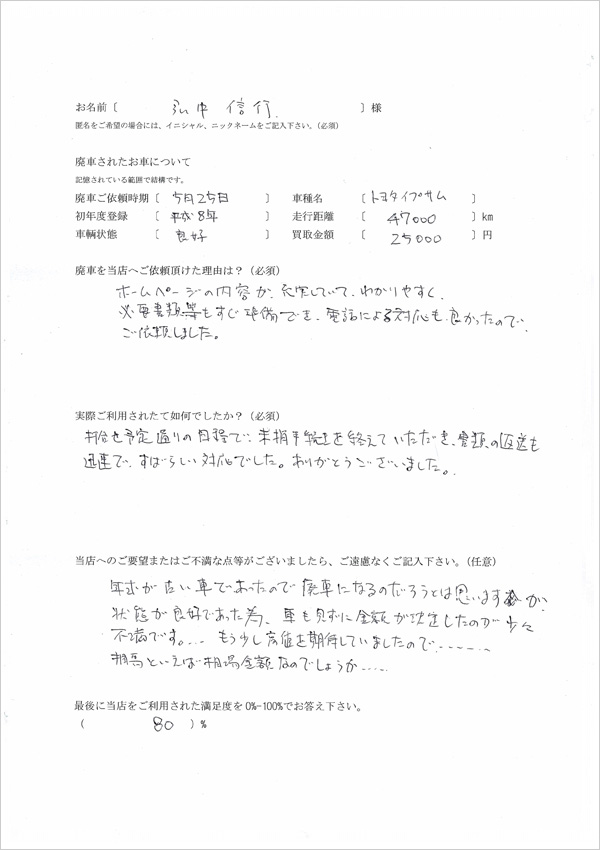 お名前〔 弘中 信行 〕様
匿名をご希望の場合には、イニシャル、ニックネームをご記入下さい。(必須)
廃車されたお車について
記憶されている範囲で結構です。
廃車ご依頼時期〔 5月25日 〕 車種名〔 トヨタイプサム 〕
初年度登録〔 平成8年 〕 走行距離〔 47000 〕km
車輌状態〔 良好 〕 買取金額〔 25000 〕円
廃車を当店へご依頼頂けた理由は？（必須）
ホームページの内容が、充実していて、わかりやすく、
必要書類等もすぐ準備でき、電話による対応も良かったので
ご依頼しました。
実際ご利用されたて如何でしたか？（必須）
予定通りの日程で、抹消手続きを終えていただき、書類の返送も
迅速で、すばらしい対応でした。ありがとうございました。
当店へのご要望またはご不満な点等がございましたら、ご遠慮なくご記入下さい。(任意)
年式が古い車であったので廃車になるのだろうとは思いますが、
状態が良好であった為、車も見ずに金額が決定したのが少々
不満です。... もう少し高値を期待していましたので、......
相場といえば相場金額なのでしょうか.....
最後に当店をご利用された満足度を0%-100%でお答え下さい。
（ 80 ）%